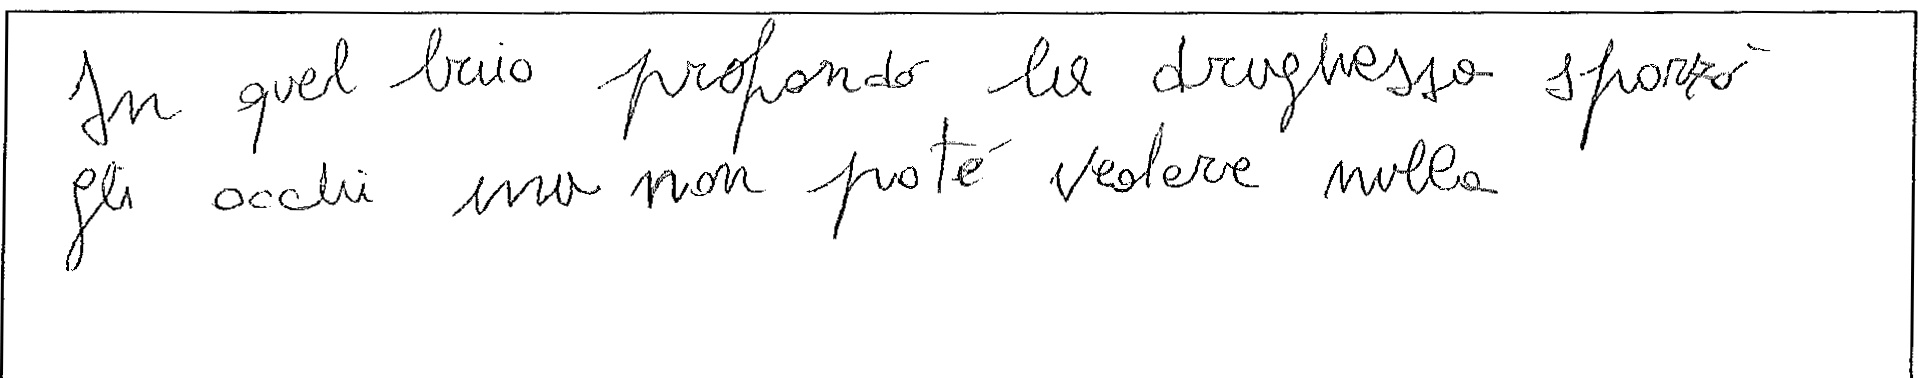 In quel buio profondo la draghessa sporzò
gli occhi ma non poté vedere nulla